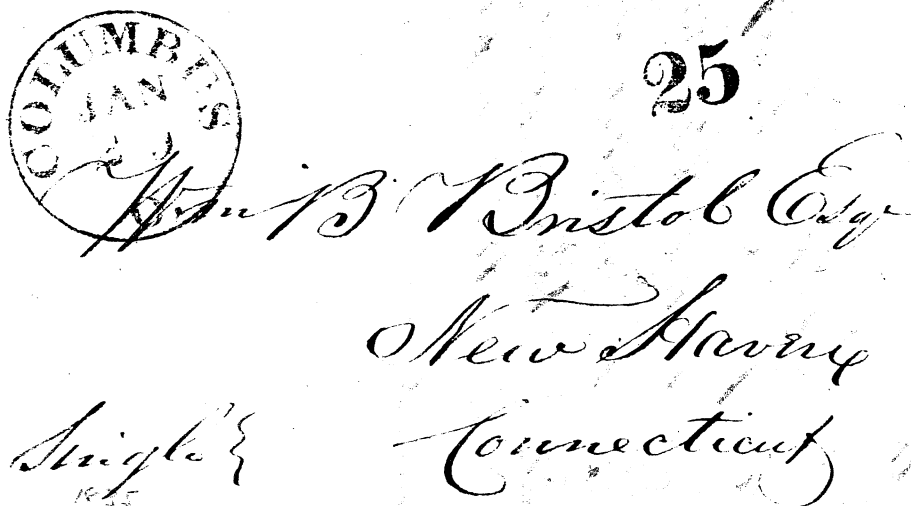 COLUMBUS
JAN
25
Wm B Bristol Esqr
New Haven
Connecticut
Single